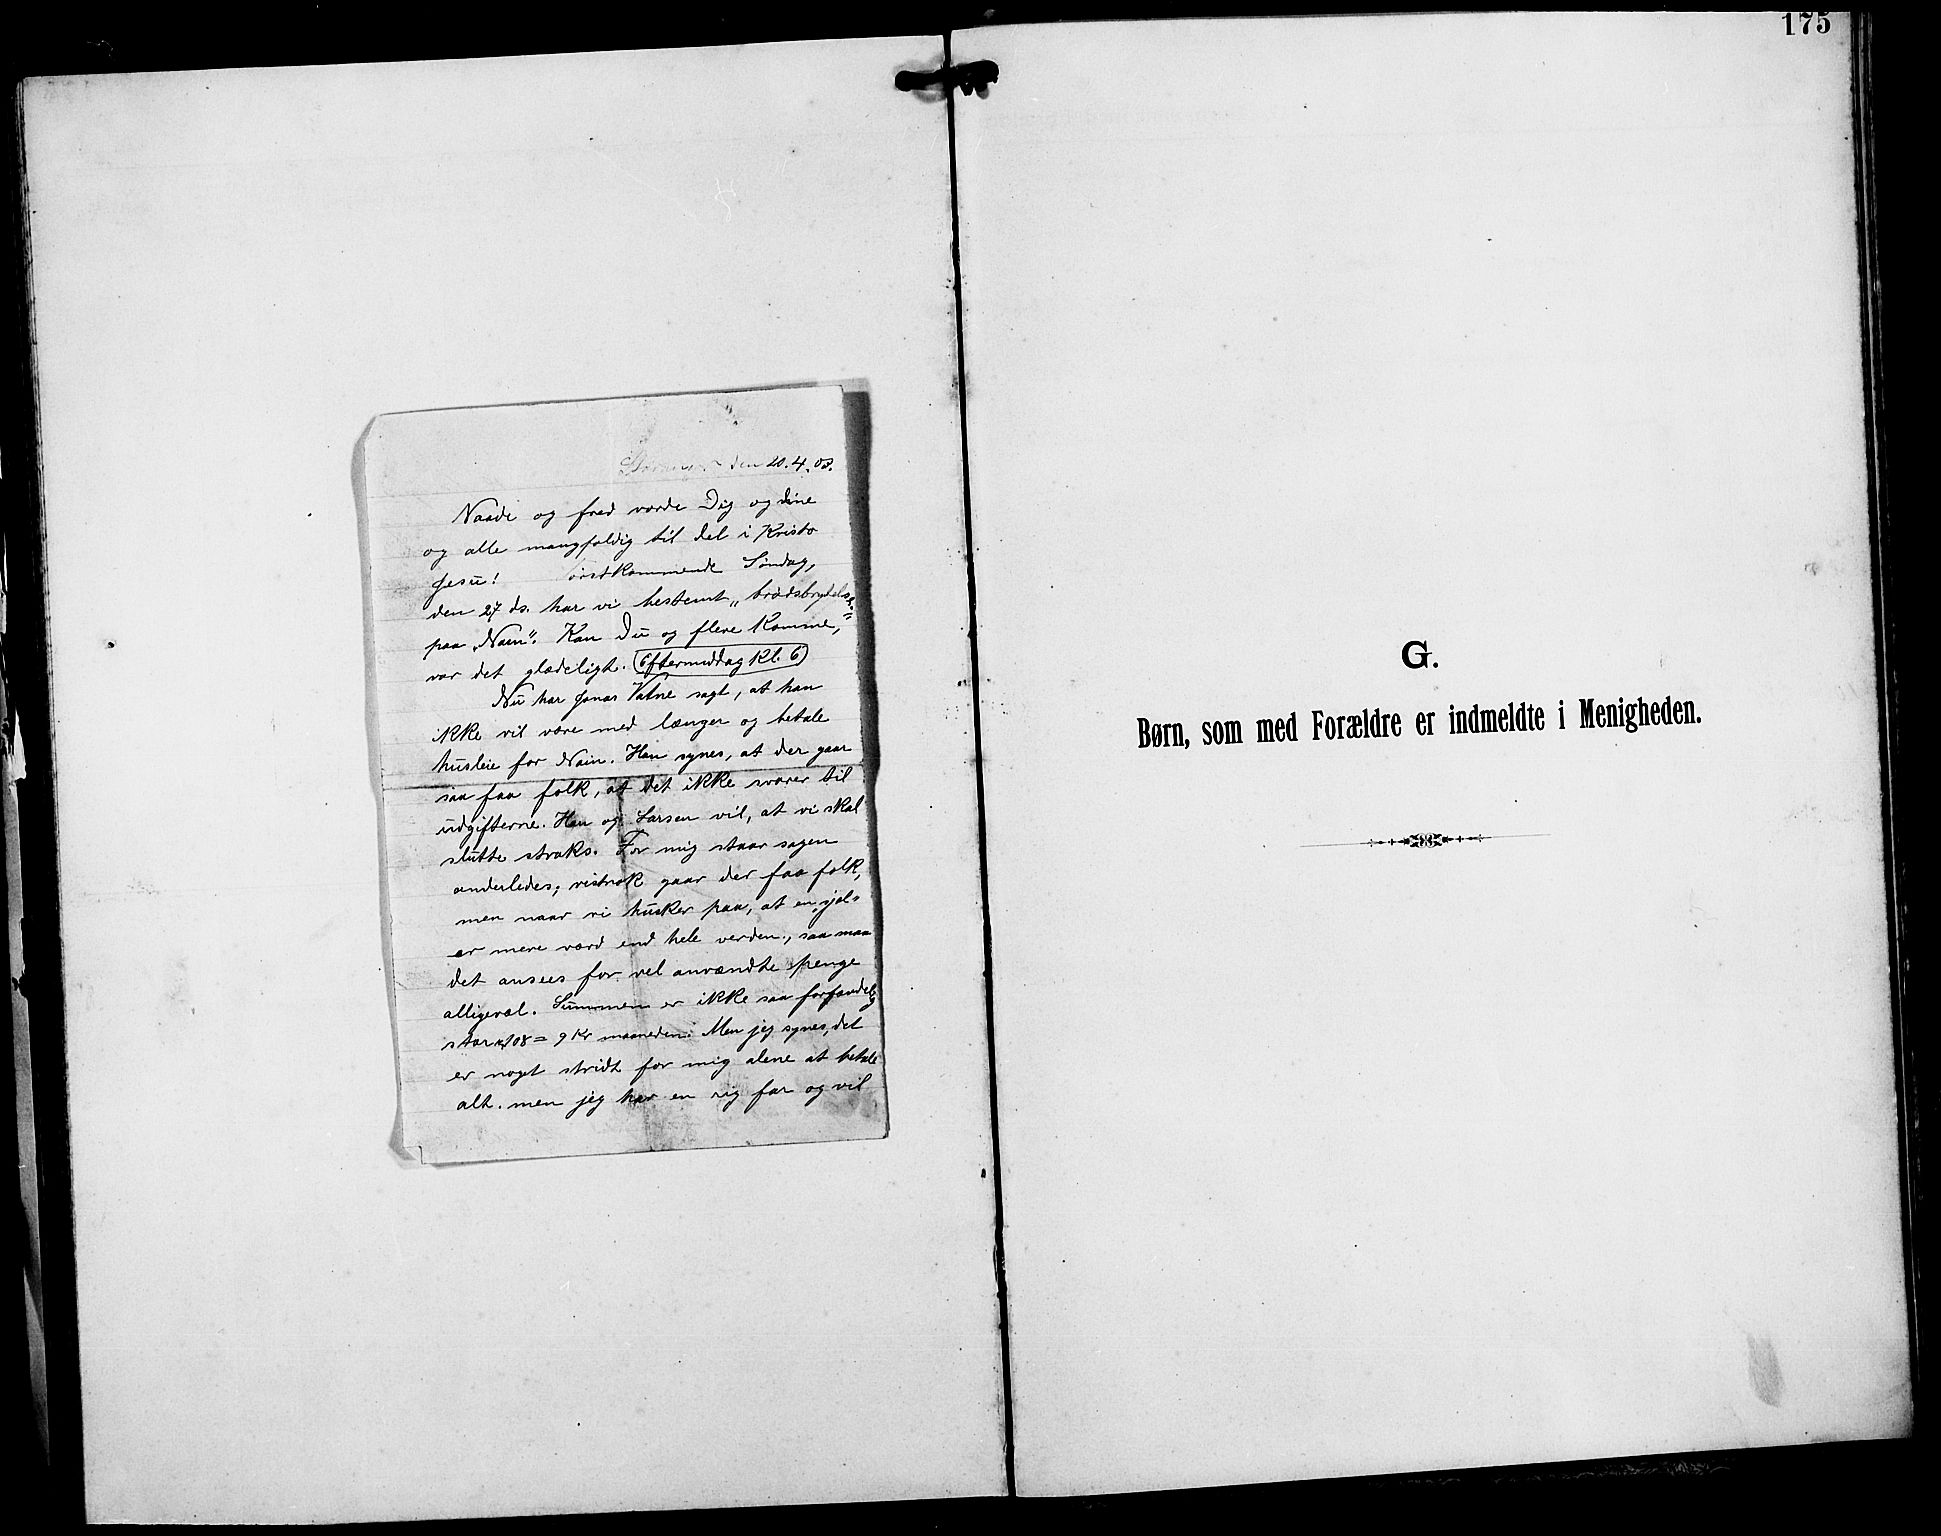 175
Stavanger den 20.4.08.
Naade og fred vorde Dig og dine
og alle mangfoldig til del i Kristo
Jesu! Førstkommende Søndag,
den 27 ds. har vi bestemt „brødsbrydelse"
paa „Nain". Kan Du og flere komme,
var det glædeligt. (Eftermiddag kl. 6)
Nu har Jonas Vatne sagt, at han
ikke vil være med længer og betale
husleie for Nain. Han synes, at der gaar
saa faa folk, at det ikke svarer til
udgifterne. Han og Larsen vil, at vi skal
slutte straks. For mig staar sagen
anderledes; vistnok gaar der faa folk,
men naar vi husker paa, at en „sjæl"
er mere værd end hele verden, saa maa
det ansees for vel anvendte penge
alligevel. Summen er ikke saa
stor 108 = 9 Kr maaneden. Men jeg synes, det
er noget stridt for mig alene at betale
alt. men jeg har en rig far og vil
G.
Børn, som med Forældre er indmeldte i Menigheden.